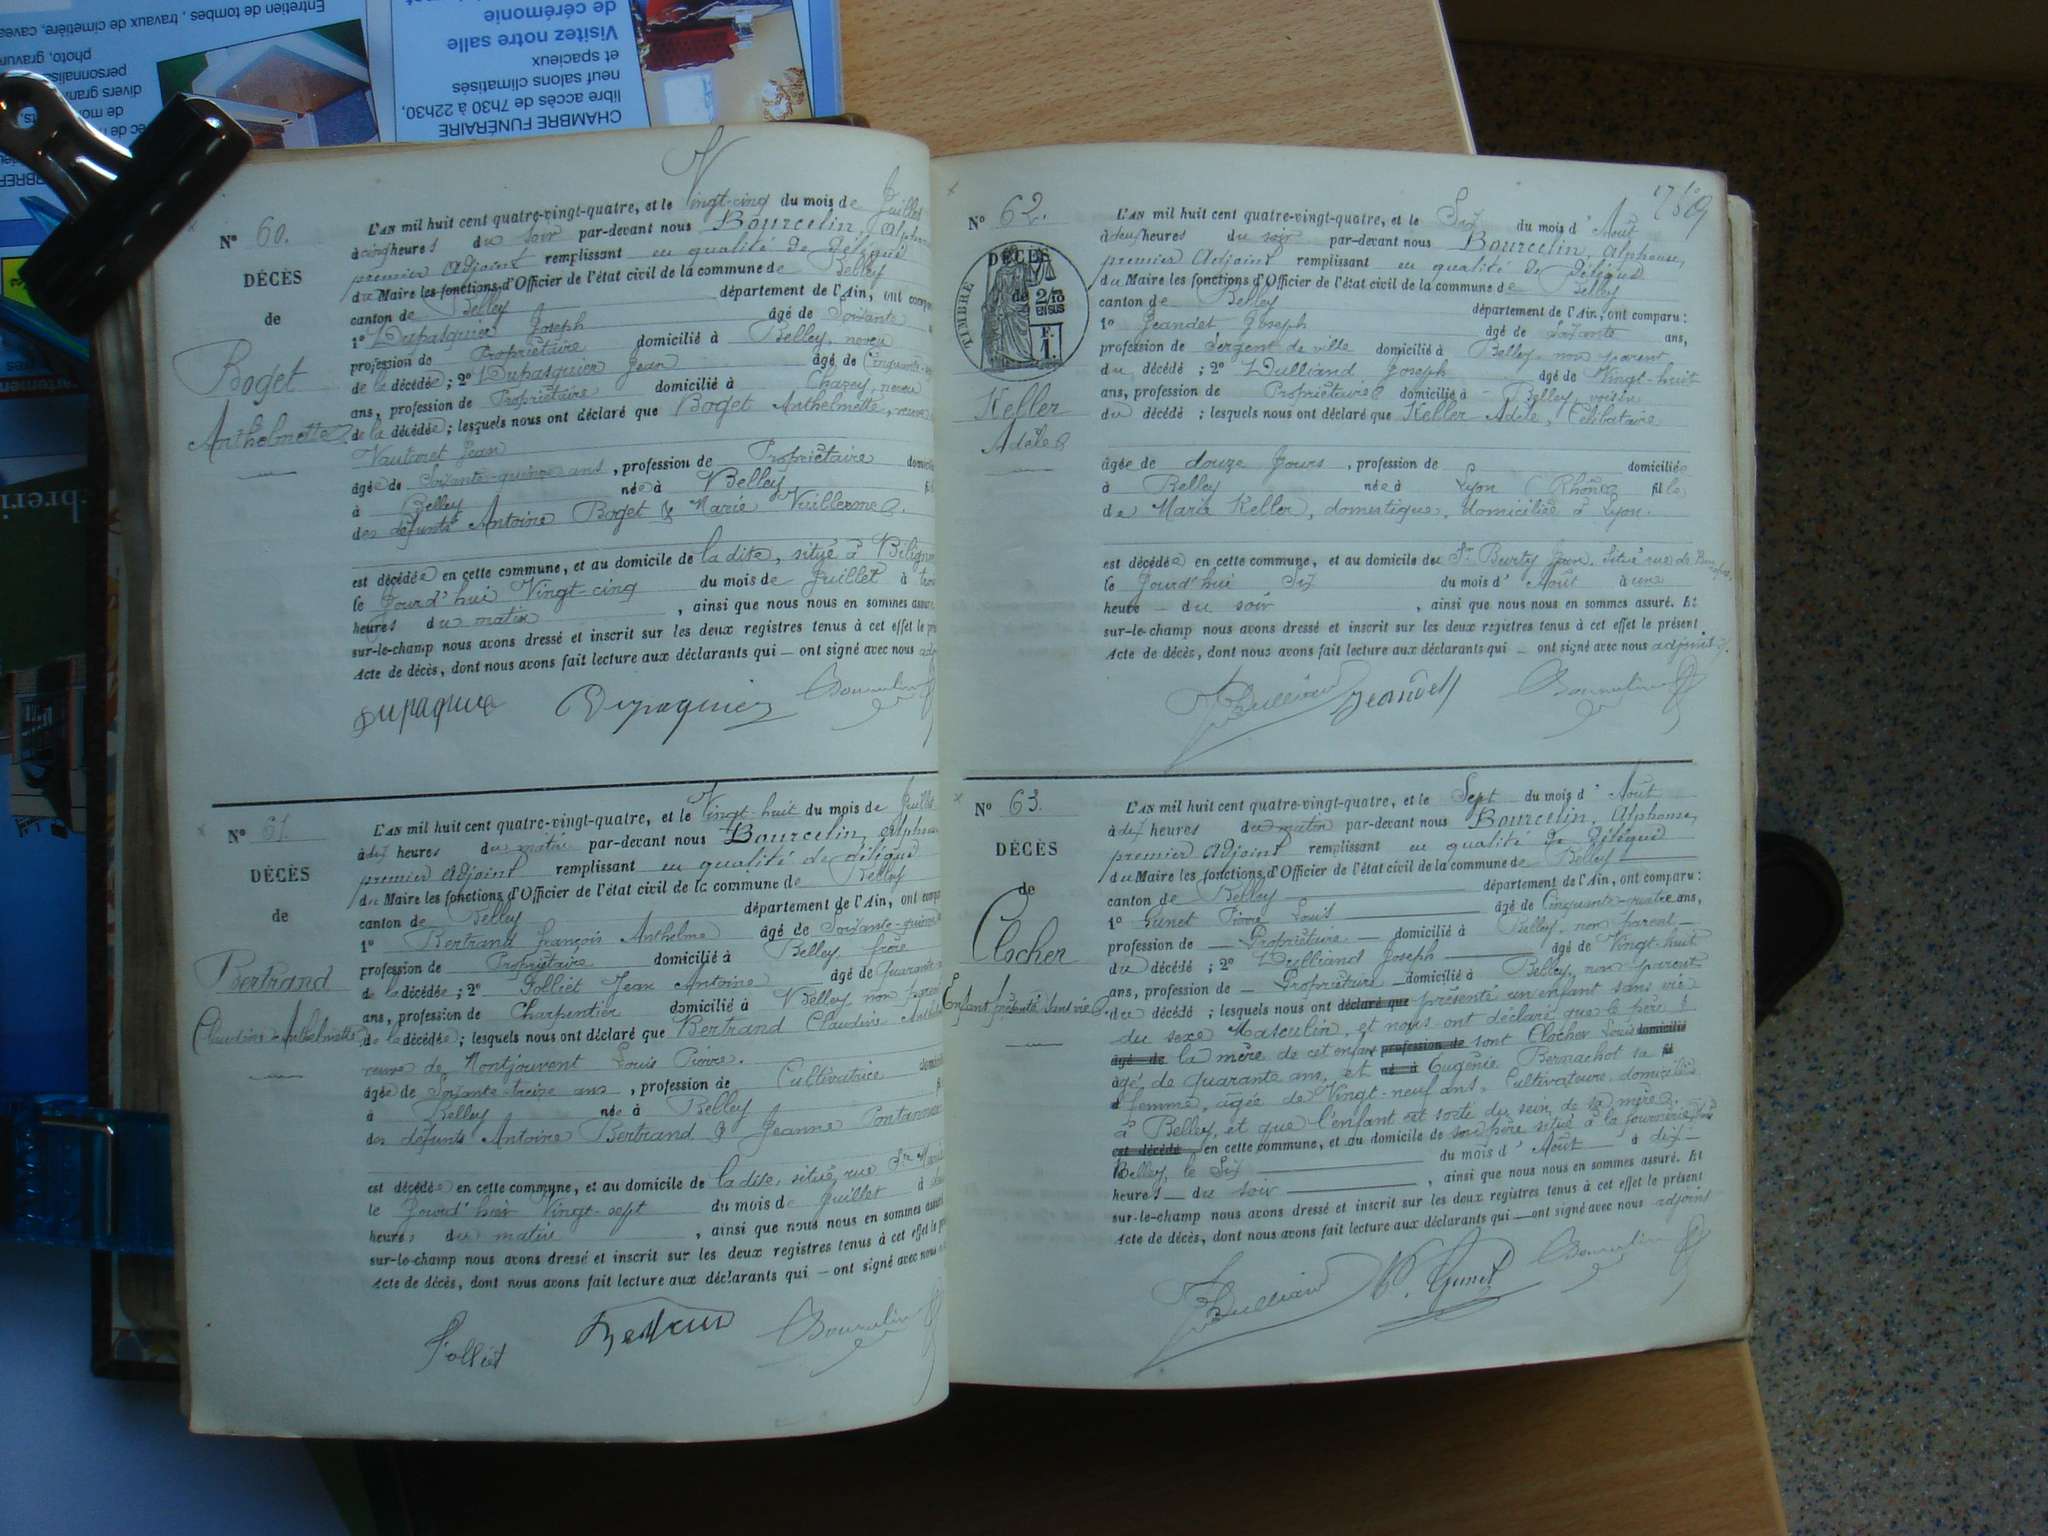 Entretien de tombes, travaux de cimetière, cavea
photo, gravur
personnalis
divers gran
de mo
CHAMBRE FUNÉRAIRE
libre accès de 7h30 à 22h30,
neuf salons climatisés
et spacieux
Visitez notre salle
de cérémonie
N° 60.
DÉCÈS
de
Boget
Anthelmette
L'AN mil huit cent quatre-vingt-quatre, et le Vingt-cinq du mois de Juillet
à cinq heures du soir par-devant nous Bourcelin, Alphon
premier Adjoint remplissant en qualité de Délégué
du Maire les fonctions d'Officier de l'état civil de la commune de Belley
canton de Belley département de l'Ain, ont comp
1° Dupasquier Joseph âgé de Soixante
profession de Propriétaire domicilié à Belley, neveu
de la décédée ; 2° Dupasquier Jean âgé de Cinquante
ans, profession de Propriétaire domicilié à Chazey, neveu
de la décédée ; lesquels nous ont déclaré que Boget Anthelmette, veuve
Vautaret Jean
âgée de Soixante-quinze ans, profession de Propriétaire domicili
à Belley née à Belley fi
des défunts Antoine Boget & Marie Vuillerme.
est décédée en cette commune, et au domicile de la dite, situé à
le Jourd'hui Vingt-cinq du mois de Juillet à
heures du matin, ainsi que nous nous en sommes assuré.
sur-le-champ nous avons dressé et inscrit sur les deux registres tenus à cet effet le pré
Acte de décès, dont nous avons fait lecture aux déclarants qui — ont signé avec nous adj
Dupaquier Bourcelin
N° 61.
DÉCÈS
de
Bertrand
Claudine Anthelmette
L'AN mil huit cent quatre-vingt-quatre, et le Vingt-huit du mois de Juillet
à dix heures du matin par-devant nous Bourcelin, Alphons
premier Adjoint remplissant en qualité de délégué
du Maire les fonctions d'Officier de l'état civil de la commune de Belley
canton de Belley département de l'Ain, ont compa
1° Bertrand François Anthelme âgé de Soixante-quinze
profession de Propriétaire domicilié à Belley, frère
de la décédée ; 2° Jolliet Jean Antoine âgé de Quarante
ans, profession de Charpentier domicilié à Belley, non paren
de la décédée ; lesquels nous ont déclaré que Bertrand Claudine Anthelm
veuve de Montjouvent Louis Pierre.
âgée de Soixante-treize ans, profession de Cultivatrice domici
à Belley née à Belley fi
des défunts Antoine Bertrand & Jeanne Pontanin
est décédée en cette commune, et au domicile de la dite, situé, rue Ste Marie
le Jourd'hier Vingt-sept du mois de Juillet à
heures du matin, ainsi que nous nous en sommes assuré
sur-le-champ nous avons dressé et inscrit sur les deux registres tenus à cet effet le p
Acte de décès, dont nous avons fait lecture aux déclarants qui — ont signé avec nous
Jolliet Bertrand Bourcelin
N° 62.
DÉCÈS
TIMBRE
de 2/10
EN SUS
F.
1.
Keller
Adèle
L'AN mil huit cent quatre-vingt-quatre, et le Six du mois d'Août
à deux heures du soir par-devant nous Bourcelin, Alphonse,
premier Adjoint remplissant en qualité de Délégué
du Maire les fonctions d'Officier de l'état civil de la commune de Belley
canton de Belley département de l'Ain, ont comparu :
1° Jeandet Joseph âgé de Soixante ans,
profession de Sergent de ville domicilié à Belley, non parent
du décédé ; 2° Dulliand Joseph âgé de Vingt-huit
ans, profession de Propriétaire domicilié à Belley, voisin
du décédé ; lesquels nous ont déclaré que Keller Adèle, Célibataire
âgée de douze Jours, profession de domiciliée
à Belley née à Lyon (Rhône) fille
de Marie Keller, domestique, domiciliée à Lyon.
est décédée en cette commune, et au domicile du Sr Burtey Jean, Situé rue de
le Jourd'hui Six du mois d'Août à une
heure — du soir, ainsi que nous nous en sommes assuré. Et
sur-le-champ nous avons dressé et inscrit sur les deux registres tenus à cet effet le présent
Acte de décès, dont nous avons fait lecture aux déclarants qui — ont signé avec nous adjoint.
J Dulliand Jeandet Bourcelin
N° 63.
DÉCÈS
de
Clocher
Enfant présenté sans vie
L'AN mil huit cent quatre-vingt-quatre, et le Sept du mois d'Août
à dix heures du matin par-devant nous Bourcelin, Alphonse,
premier Adjoint remplissant en qualité de Délégué
du Maire les fonctions d'Officier de l'état civil de la commune de Belley
canton de Belley département de l'Ain, ont comparu :
1° Gunet Pierre Louis âgé de Cinquante-quatre ans,
profession de — Propriétaire — domicilié à Belley, non parent —
du décédé ; 2° Dulliand Joseph âgé de Vingt-huit
ans, profession de — Propriétaire — domicilié à Belley, non parent
du décédé ; lesquels nous ont déclaré que présenté un enfant sans vie
du sexe Masculin, et nous ont déclaré que le père &
âgé de la mère de cet enfant profession de sont Clocher Louis domicilié
âgé de quarante ans, et né à Eugénie Bernachot sa fil
à femme, âgée de Vingt-neuf ans, Cultivateurs, domiciliés
à Belley, et que l'enfant est sorti du sein de sa mère.
est décédé en cette commune, et au domicile de son père situé à la
Belley, le Six du mois d'Août à dix —
heures — du soir, ainsi que nous nous en sommes assuré. Et
sur-le-champ nous avons dressé et inscrit sur les deux registres tenus à cet effet le présent
Acte de décès, dont nous avons fait lecture aux déclarants qui — ont signé avec nous adjoint
J Dulliand P. Gunet Bourcelin